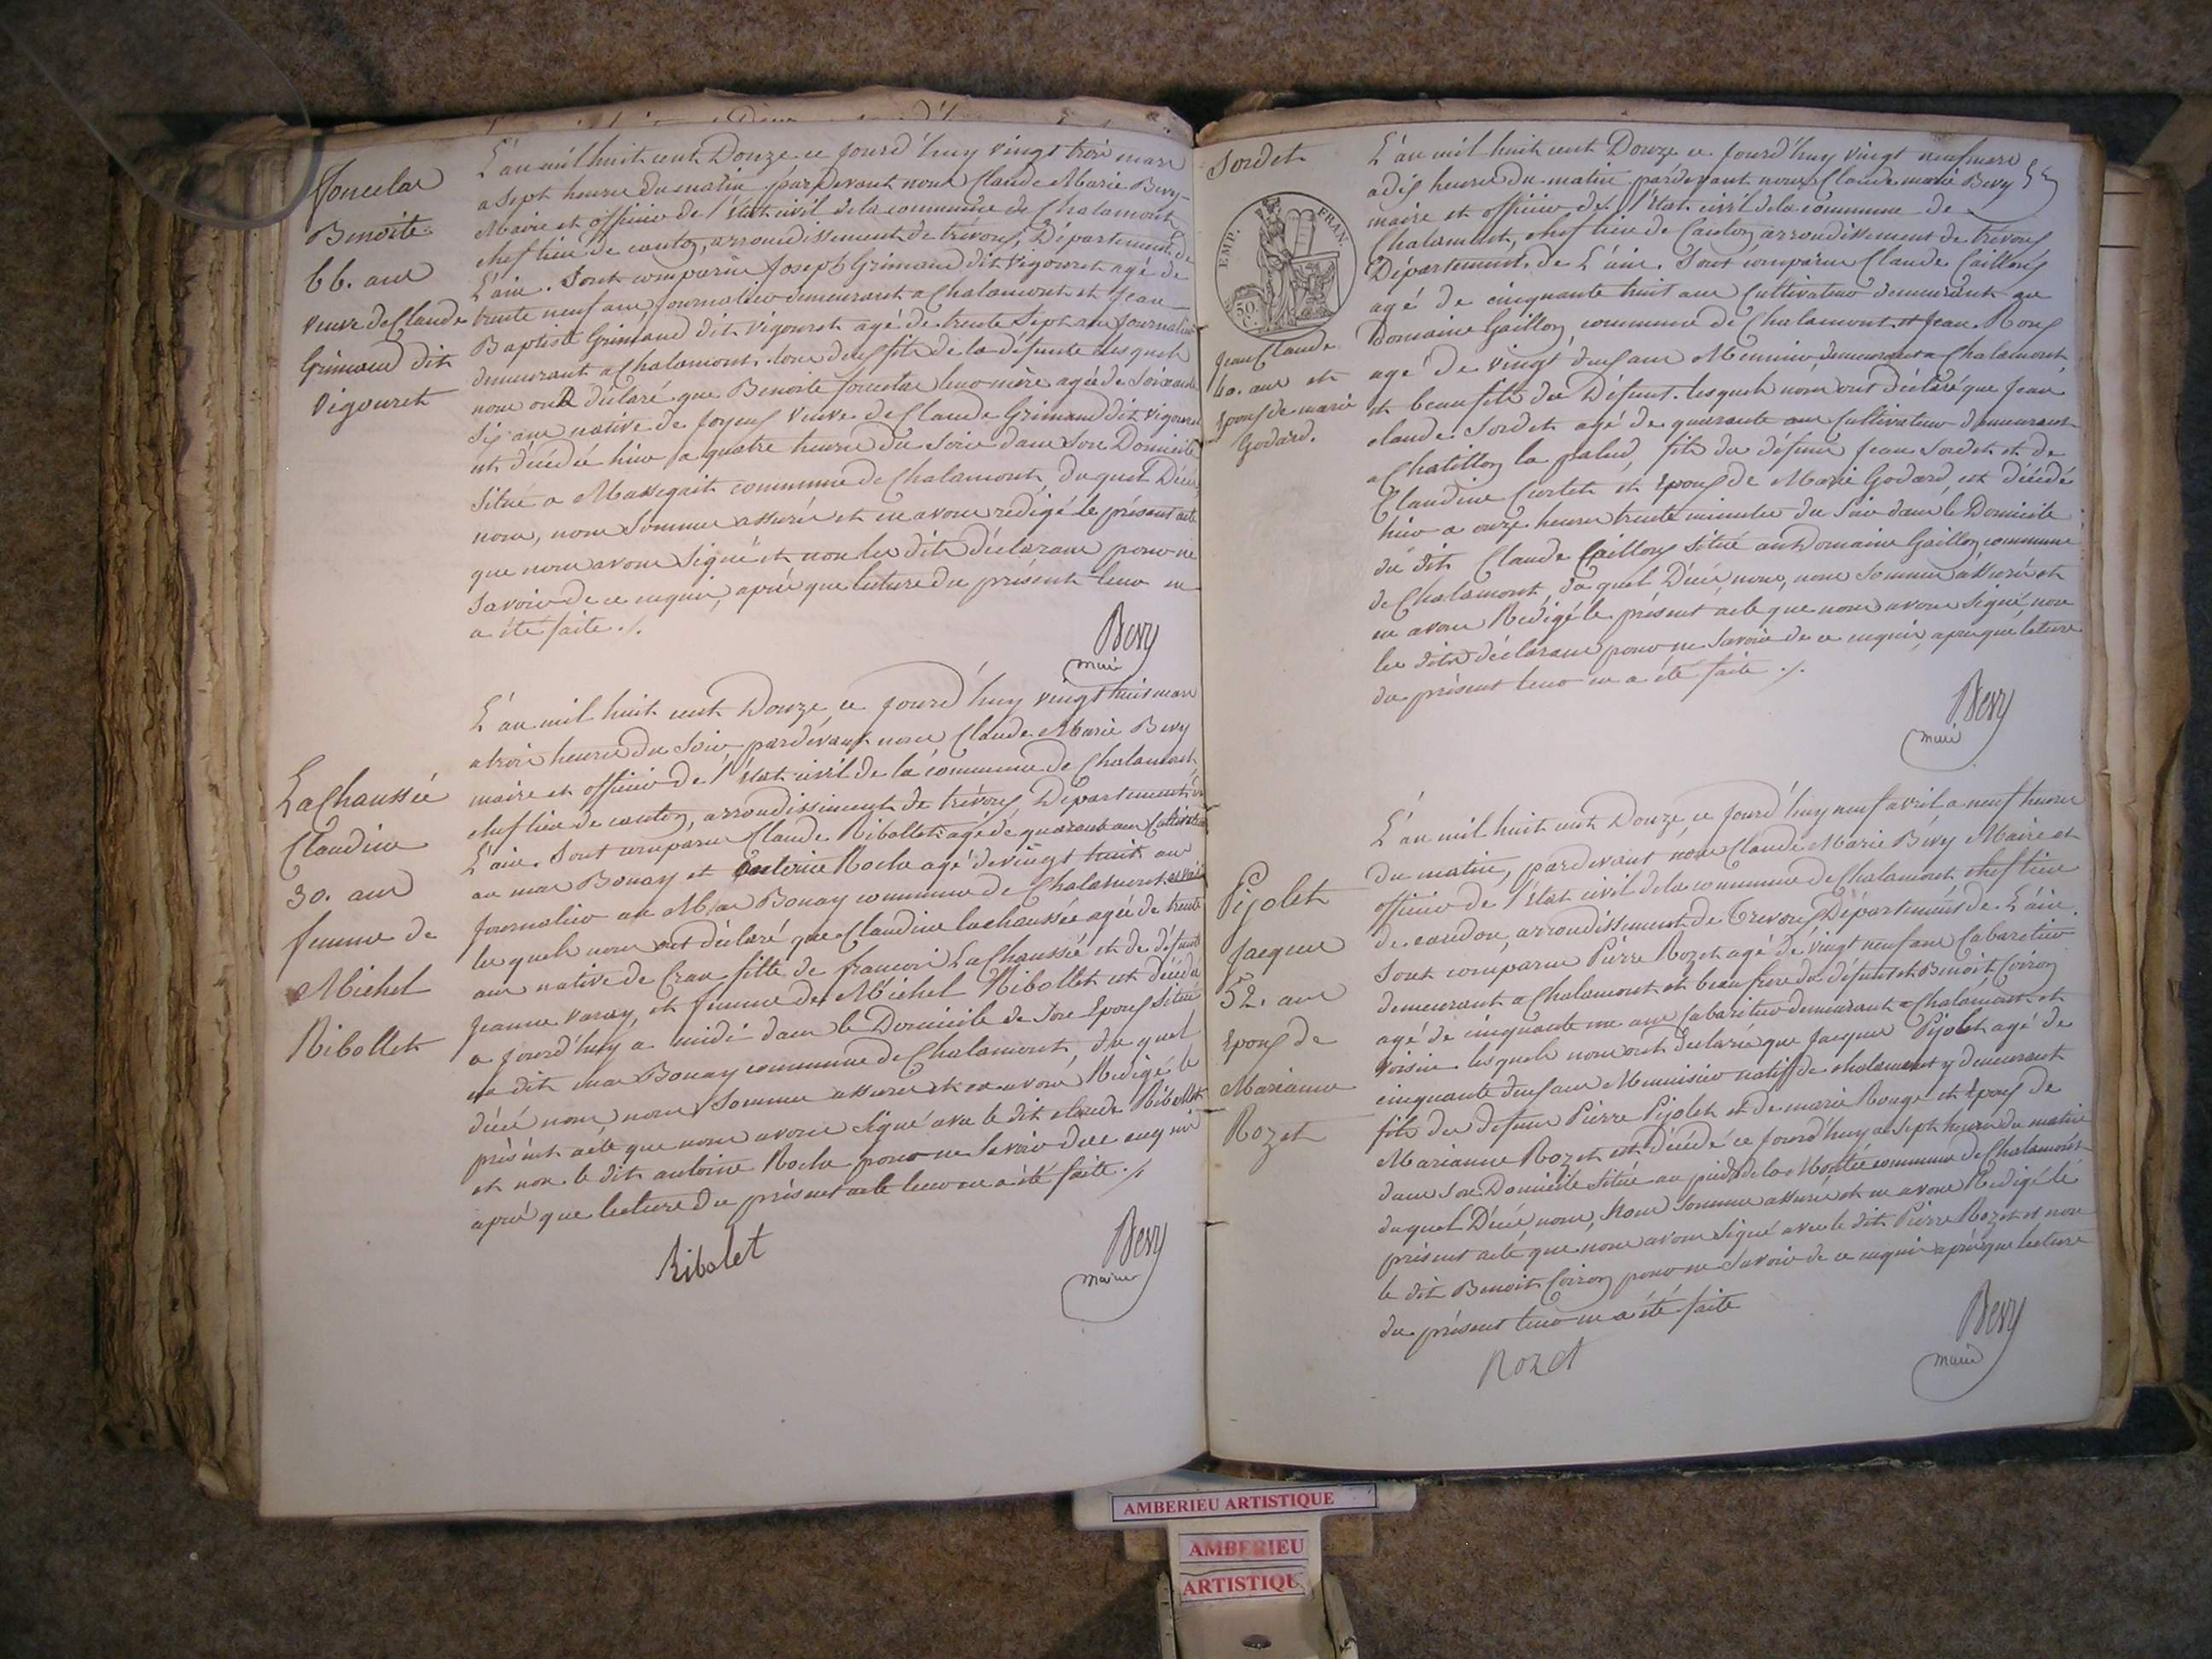 Joncelas
Benoite
66. ans
veuve de Claude
Grimaud dit
Vigouret
L'an mil huit cent Douze ce jourd'huy vingt trois mars
a sept heures du matin pardevant nous Claude Marie Bevy
Maire et officier de l'état civil de la commune de Chalamont
chef lieu de canton, arrondissement de trévoux, Département de
L'ain. Sont comparus Joseph Grimaud dit Vigouret agé de
trente neuf ans journalier demeurant a Chalamont et Jean
Baptiste Grimaud dit vigouret agé de trente sept ans journalier
demeurant a Chalamont. tous deux fils de la défunte lesquels
nous ont déclaré que Benoite Joncelas leur mère agée de soixante
six ans native de Joyeux veuve de Claude Grimaud dit Vigouret
est décédée hier a quatre heures du soir dans son Domicile
situé a Massegait commune de Chalamont, duquel Décès
nous, nous sommes assurés et en avons rédigé le présent acte
que nous avons signé et non les dits déclarans pour ne
savoir de ce enquis, après que lecture du présent leur en
a été faite ./.
Bevy
maire
LaChaussée
Claudine
30. ans
femme de
Michel
Ribollet
L'an mil huit cent Douze, ce jourd'huy vingt huit mars
a trois heures du soir, pardevant nous Claude Marie Bevy
maire et officier de l'état civil de la commune de Chalamont,
chef lieu de canton, arrondissement de trévoux, Département de
L'ain. Sont comparus Claude Ribollet agé de quarante ans Cultivateur
au mas Bonay et Antoine Roche agé de vingt huit ans
journalier au Mas Bonay commune de Chalamont
les quels nous ont déclaré que Claudine lachaussée agée de trente
ans native de Cran fille de francois LaChaussée et de défunte
Jeanne Varay, et femme de Michel Ribollet est décédée
a jourd'huy a midi dans le Domicile de son Epoux situé
au dit mas Bonay commune de Chalamont, du quel
décès nous, nous sommes assurés et en avons Rédigé le
présent acte que nous avons signé avec le dit claude Ribollet
et non le dit antoine Roche pour ne savoir de ce enquis
après que lecture du présent acte leur en a été faite ./.
Ribolet
Bevy
maire
Sordet
EMP. FRAN.
50. C.
Jean Claude
40. ans et
Epoux de marie
Godard.
L'an mil huit cent Douze ce jourd'huy vingt neuf mars
a dix heures du matin pardevant nous Claude marie Bevy
maire et officier de l'état civil de la commune de
Chalamont, chef lieu de Canton arrondissement de trévoux
Département de L'ain. Sont comparus Claude Caillon
agé de cinquante huit ans Cultivateur demeurant au
Domaine Gaillon, commune de Chalamont et Jean Roux
agé de vingt deux ans Meunier demeurant a Chalamont,
et beau fils du Défunt. lesquels nous ont déclaré que Jean
claude Sordet agé de quarante ans Cultivateur demeurant
a Chatillon la palud, fils du défunt Jean Sordet et de
Claudine Curtet et Epoux de Marie Godard, est décédé
hier a onze heures trente minutes du soir dans le Domicile
du dit Claude Caillon situé au Domaine Gaillon, commune
de Chalamont, du quel Décès nous, nous sommes assurés et
en avons Redigé le présent acte que nous avons signé, non
les dits déclarans pour ne savoir de ce enquis, après que lecture
du présent leur en a été faite ./.
Bevy
maire
Pijolet
Jacques
52. ans
Epoux de
Marianne
Rozet
L'an mil huit cent Douze, ce jourd'huy neuf avril a neuf heures
du matin, pardevant nous Claude Marie Bevy Maire et
officier de l'état civil de la commune de Chalamont chef lieu
de canton, arrondissement de Trevoux Département de L'ain.
Sont comparus Pierre Rozet agé de vingt neuf ans Cabaretier
demeurant a Chalamont et beau frère du défunt et Benoit Coiron
agé de cinquante un ans Cabaretier demeurant a Chalamont et
voisin lesquels nous ont déclaré que Jacques Pijolet agé de
cinquante deux ans Menuisier natif de chalamont y demeurant
fils du defunt Pierre Pijolet et de marie Rouge et Epoux de
Marianne Rozet est décédé ce jourd'huy a sept heures du matin
dans son Domicile situé au pied de la Montée commune de Chalamont
duquel Décès nous, Nous sommes assurés et en avons Redigé le
présent acte que nous avons signé avec le dit Pierre Rozet et non
le dit Benoit Coiron pour ne savoir de ce enquis après que lecture
du présent leur en a été faite
Rozet
Bevy
maire
AMBERIEU ARTISTIQUE
AMBERIEU
ARTISTIQUE